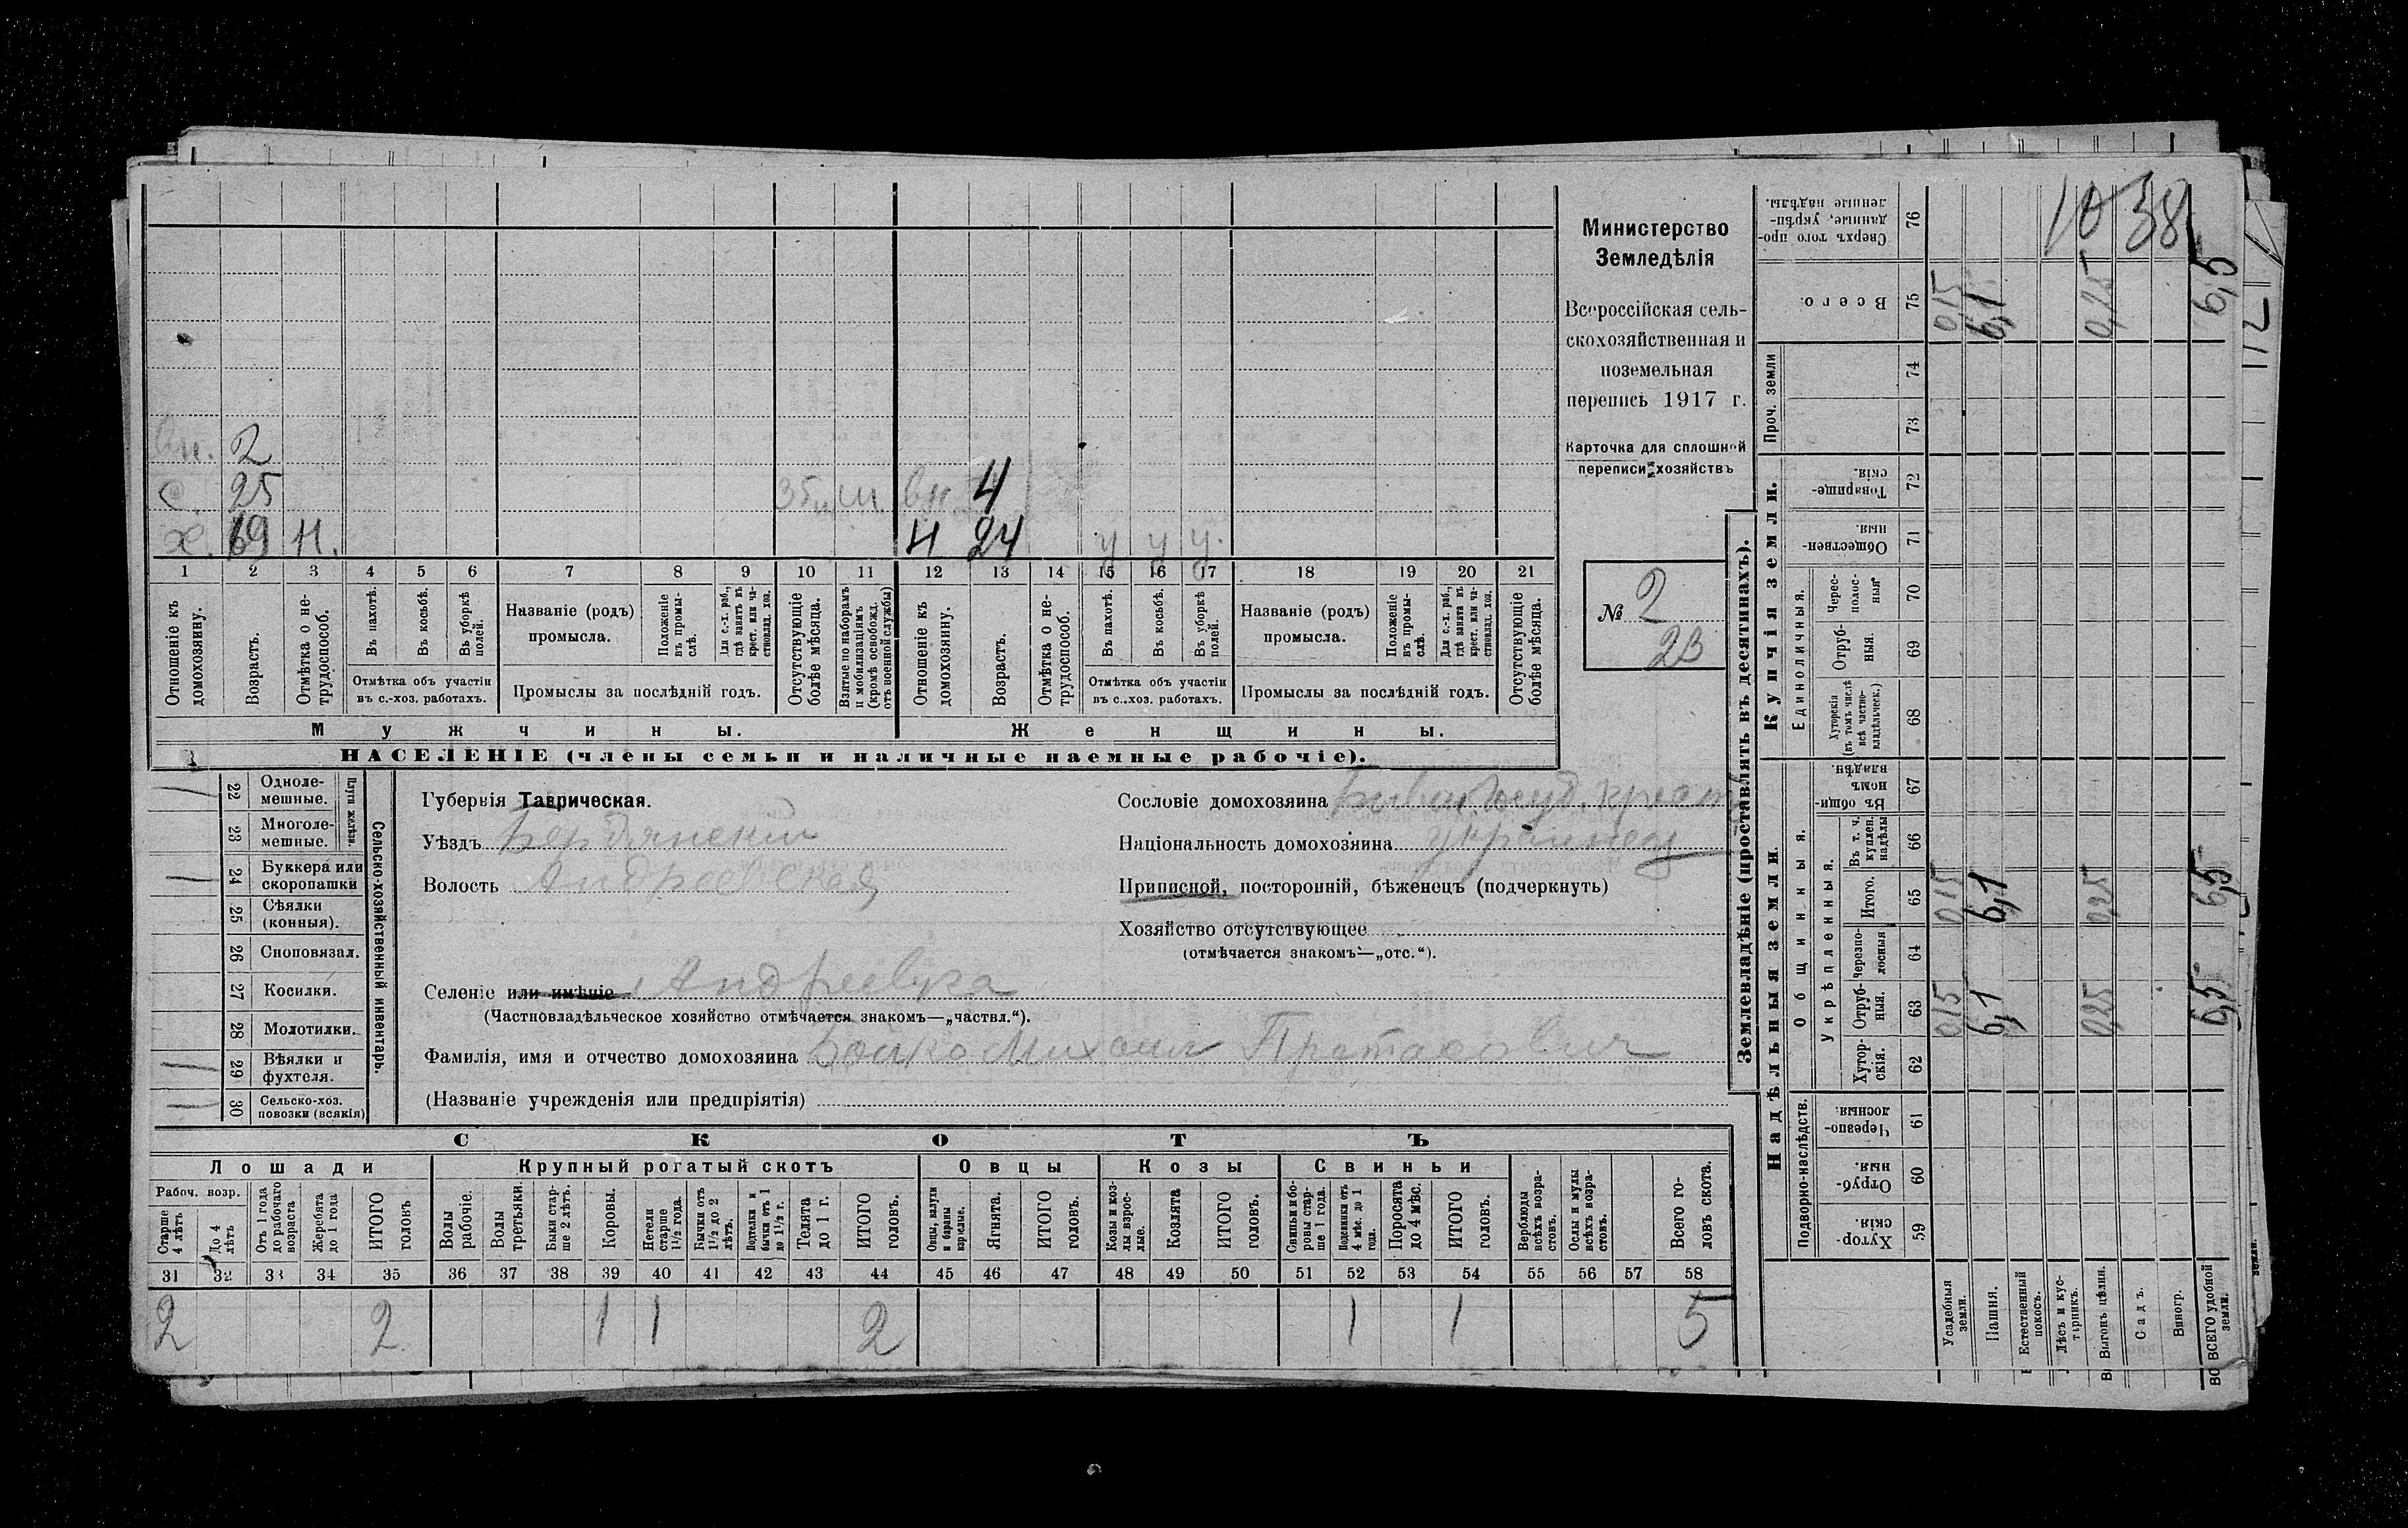 Министерство
Земледѣлія
Всероссійская сель-
скохозяйственная и
поземельная
перепись 1917 г.
Карточка для сплошной
переписи хозяйствъ
№ 2
23
вн. 2
с 25 вн 4
х. 69 н. Н 24 у у у.
1 2 3 4 5 6 7 8 9 10 11 12 13 14 15 16 17 18 19 20 21
Отношеніе къ домохозяину.
Возрастъ.
Отмѣтка о не-трудоспособ.
Въ пахотѣ.
Въ косьбѣ.
Въ уборкѣ полей.
Отмѣтка объ участіи
въ с.-хоз. работахъ.
Названіе (родъ)
промысла.
Положеніе въ промы-слѣ.
Для с.-х. раб., гдѣ занятъ въ крест. или ча-стновлад. хоз.
Промыслы за послѣдній годъ.
Отсутствующіе болѣе мѣсяца.
Взятые по наборамъ и мобилизаціямъ (кромѣ освобожд. отъ военной службы)
Отношеніе къ домохозяину.
Возрастъ.
Отмѣтка о не-трудоспособ.
Въ пахотѣ.
Въ косьбѣ.
Въ уборкѣ полей.
Отмѣтка объ участіи
въ с.-хоз. работахъ.
Названіе (родъ)
промысла.
Положеніе въ промы-слѣ.
Для с.-х. раб., гдѣ занята въ крест. или ча-стновлад. хоз.
Промыслы за послѣдній годъ.
Отсутствующіе болѣе мѣсяца.
Мужчины. Женщины.
НАСЕЛЕНІЕ (члены семьи и наличные наемные рабочіе).
Сельско-хозяйственный инвентарь.
Плуги желѣзн.
1 22 Одноле-мешные.
23 Многоле-мешные.
1 24 Буккера или скоропашки
25 Сѣялки (конныя).
26 Сноповязал.
27 Косилки.
28 Молотилки.
1 29 Вѣялки и фухтеля.
1 30 Сельско-хоз. повозки (всякія)
Губернія Таврическая.
Уѣздъ Бердянскій
Волость Андреевская
Селеніе или имѣніе Андреевка
(Частновладѣльческое хозяйство отмѣчается знакомъ—„частвл.“).
Фамилія, имя и отчество домохозяина Бойко Михаил
(Названіе учрежденія или предпріятія)
Сословіе домохозяина Бывш. госуд. крест
Національность домохозяина украинец
Приписной, посторонній, бѣженецъ (подчеркнуть)
Хозяйство отсутствующее
(отмѣчается знакомъ—„отс.“).
СКОТЪ
Лошади Крупный рогатый скотъ Овцы Козы Свиньи
Рабоч. возр.
Старше 4 лѣтъ
До 4 лѣтъ
Отъ 1 года до рабочаго возраста
Жеребята до 1 года
ИТОГО головъ
Волы рабочіе.
Волы третьяки.
Быки стар-ше 2 лѣтъ.
Коровы.
Нетели старше 1½ года.
Бычки отъ 1½ до 2 лѣтъ.
Подтелки и бычки отъ 1 до 1½ г.
Телята до 1 г.
ИТОГО головъ.
Овцы, валухи и бараны взрослые.
Ягнята.
ИТОГО головъ.
Козы и коз-лы взрос-лые.
Козлята
ИТОГО головъ.
Свиньи и бо-ровы стар-ше 1 года.
Подсвинки отъ 4 мѣс. до 1 года.
Поросята до 4 мѣс.
ИТОГО головъ.
Верблюды всѣхъ возра-стовъ.
Ослы и мулы всѣхъ возра-стовъ.
Всего го-ловъ скота.
31 32 33 34 35 36 37 38 39 40 41 42 43 44 45 46 47 48 49 50 51 52 53 54 55 56 57 58
2 2 1 1 2 1 1 5
Землевладѣніе (проставлять въ десятинахъ).
Надѣльныя земли.
Купчія земли.
Проч. земли
Подворно-наслѣдств.
Общинныя.
Укрѣпленныя.
Единоличныя.
Сверхъ того про-данные, укрѣп-ленные надѣлы. 76
Всего. 75 0,15 6,1 0,25 6,5
74
73
Товарище-скія. 72
Обществен-ныя. 71
Черес-полос-ныя 70
Отруб-ныя. 69
Хуторскія (въ томъ числѣ всѣ частно-владѣльческ.) 68
Въ общин-номъ владѣн. 67
Въ т. ч. куплен. надѣлы 66
Итого. 65 0,15 6,1 0,25 6,5
Черезпо-лосныя 64
Отруб-ныя. 63 0,15 6,1 0,25 6,5
Хутор-скія. 62
Черезпо-лосныя. 61
Отруб-ныя. 60
Хутор-скія. 59
Усадебныя земли.
Пашня.
Естественный покосъ.
Лѣсъ и кус-тарникъ.
Выгонъ цѣлин.
Садъ.
Виногр.
ВСЕГО удобной земли.
38